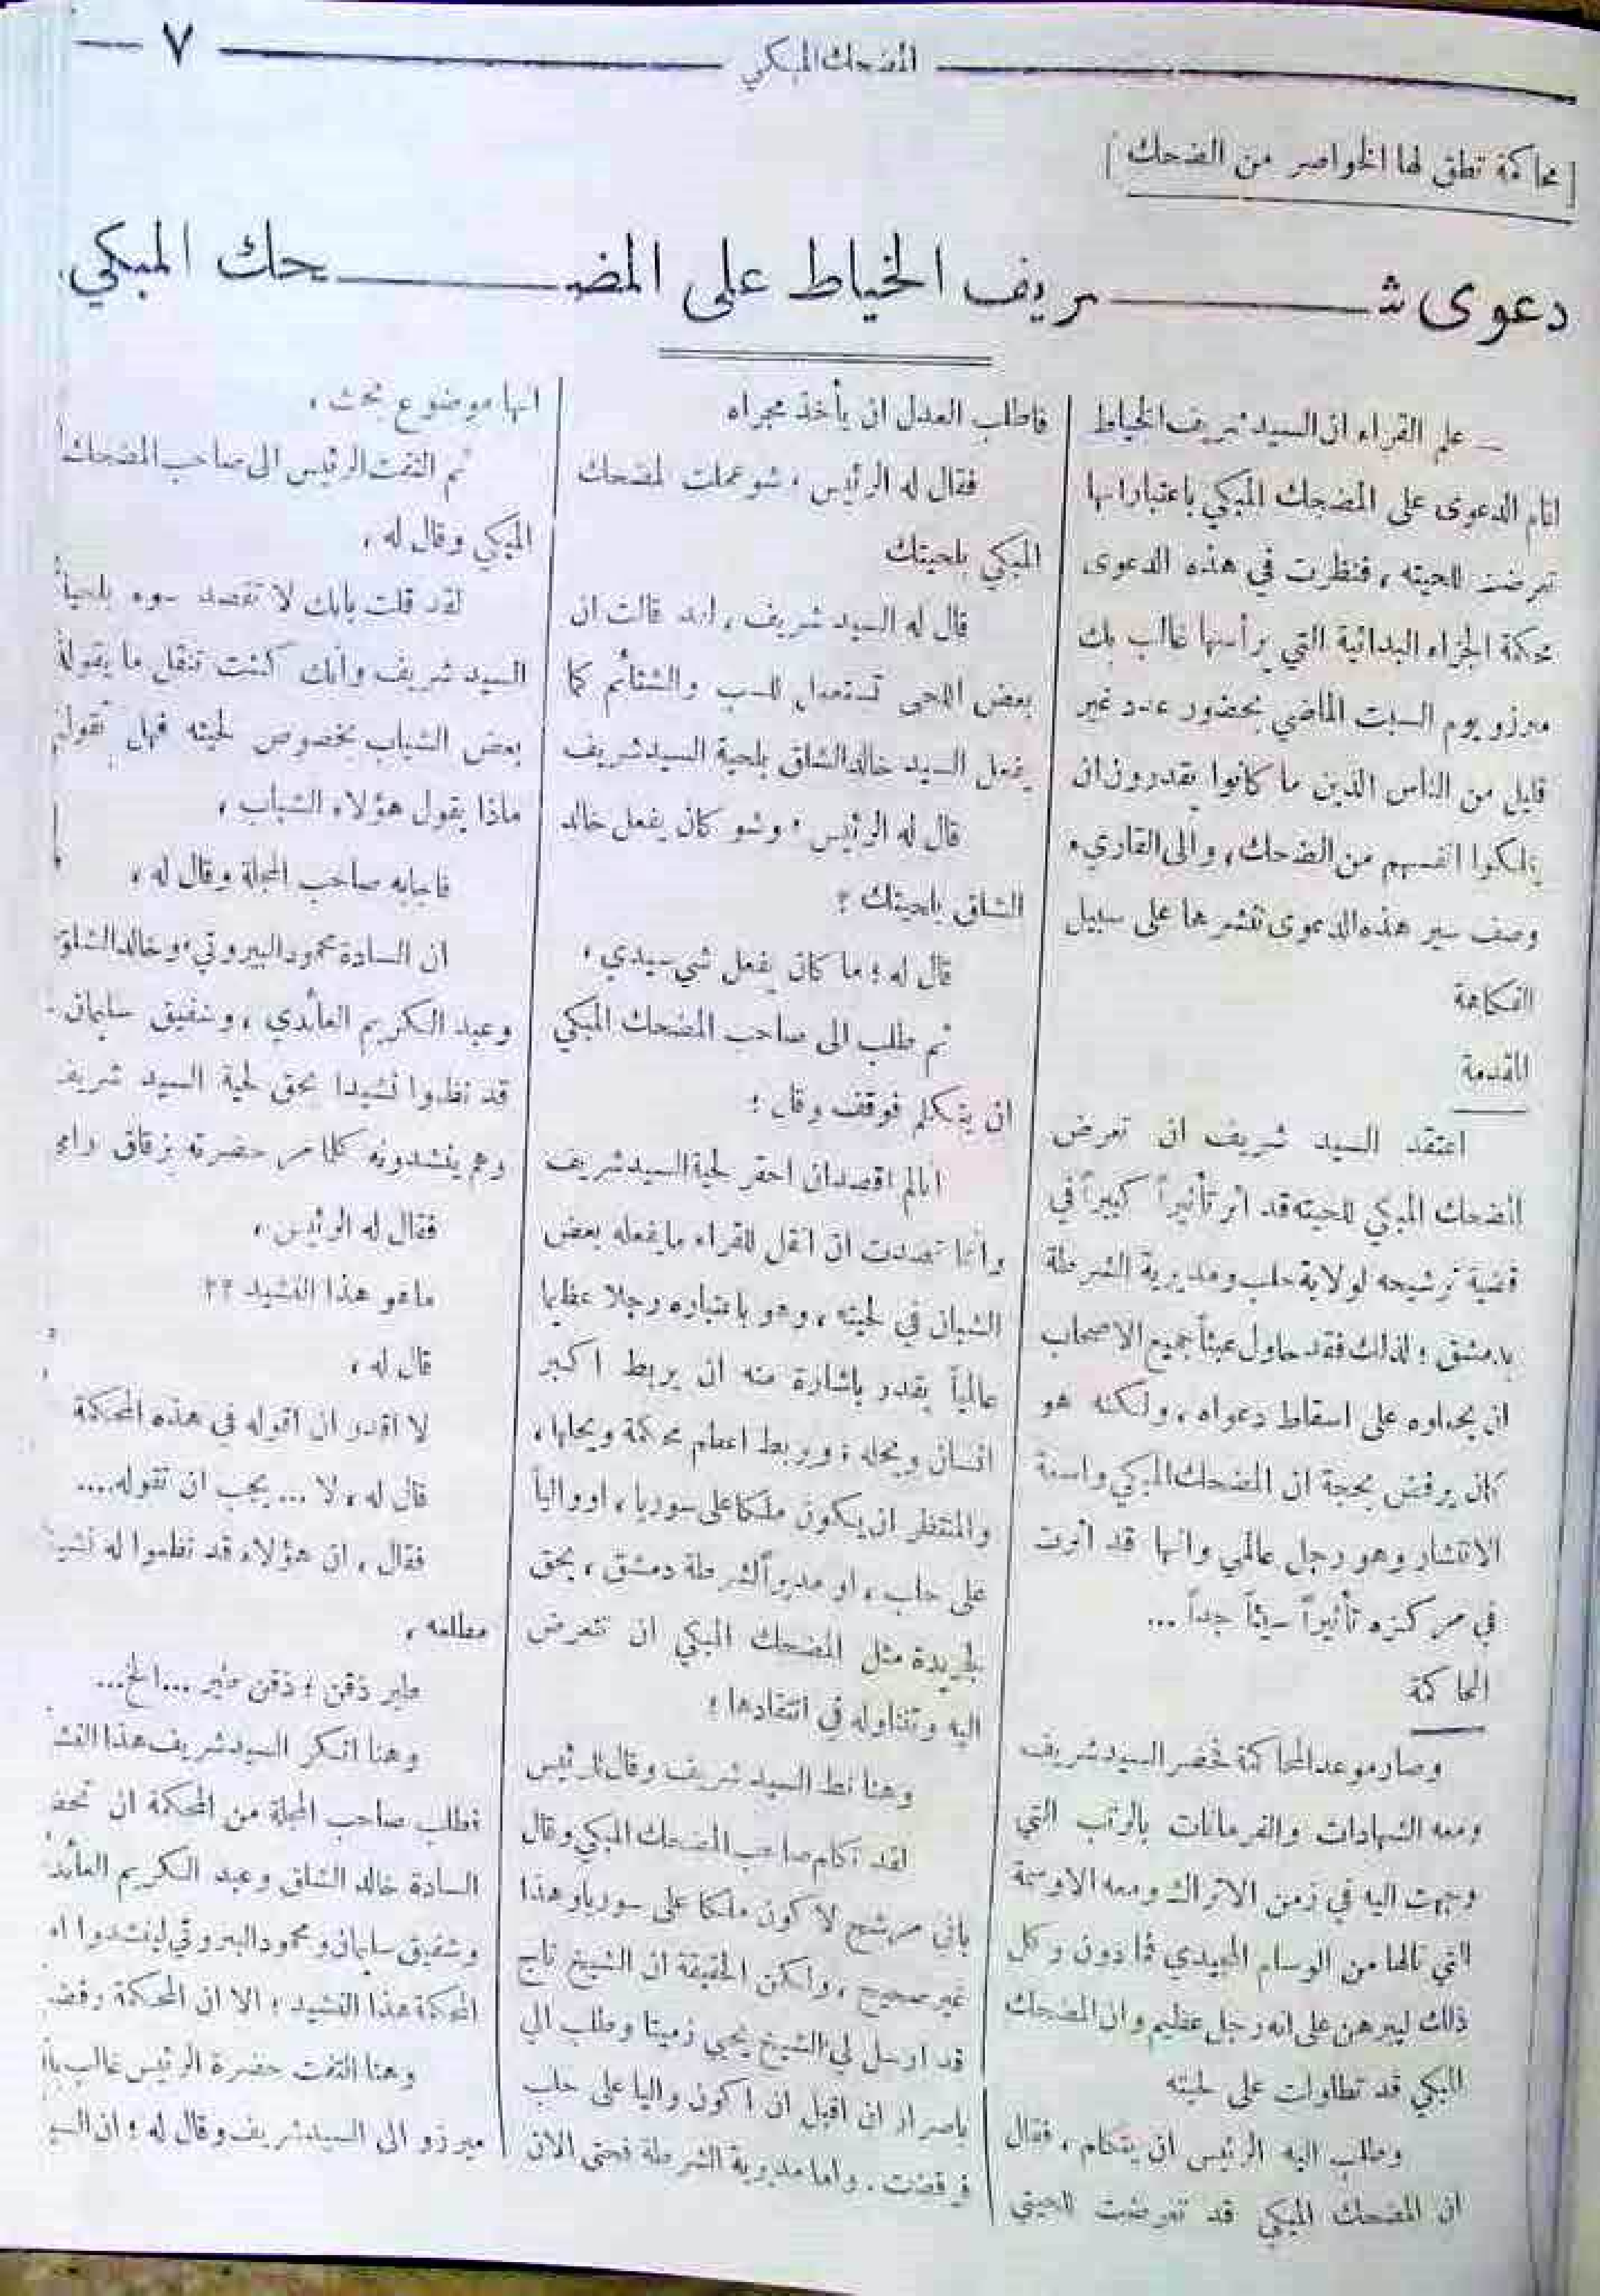 المضحك المبكي
٧
[ محاكمة تطق لها الخواصر من الضحك ]
دعوى شريف الخياط على المضحك المبكي
ــ علم القراء ان السيد شريف الخياط
اقام الدعوى على المضحك المبكي باعتبار انها
تعرضت للحيته ، فنظرت في هذه الدعوى
محكمة الجزاء البدائية التي يرأسها غالب بك
ميرزو يوم السبت الماضي بحضور عدد غير
قليل من الناس الذين ما كانوا يقدرون ان
يتملكوا انفسهم من الضحك ، والى القاريء
وصف سير هذه الدعوى ننشرها على سبيل
الفكاهة
المقدمة
اعتقد السيد شريف ان تعرض
المضحك المبكي للحيته قد اثر تأثيراً كبيراً في
قضية ترشيحه لولاية حلب ومديرية الشرطة
بدمشق ؛ لذلك فقد حاول عبثاً جميع الاصحاب
ان يحملوه على اسقاط دعواه ، ولكنه هو
كان يرفض بحجة ان المضحك المبكي واسعة
الانتشار وهو رجل عالمي وانها قد أثرت
في مركزه تأثيراً سيئاً جداً ...
المحاكمة
وصار موعد المحاكمة فحضر السيد شريف
ومعه الشهادات والفرمانات بالرتب التي
وجهت اليه في زمن الاتراك ومعه الاوسمة
التي نالها من الوسام المجيدي فما دون وكل
ذلك ليبرهن على انه رجل عظيم وان المضحك
المبكي قد تطاولت على لحيته
وطلب اليه الرئيس ان يتكلم ، فقال
ان المضحك المبكي قد تعرضت للحيتي
فاطلب العدل ان يأخذ مجراه
فقال له الرئيس ، شو عملت لمضحك
المبكي بلحيتك
قال له السيد شريف ، لقد قالت ان
بعض اللحى تستعمل للسب والشتائم كما
يفعل السيد خالد الشلق بلحية السيد شريف
قال له الرئيس ؛ وشو كان يفعل خالد
الشلق بلحيتك ؟
قال له ؛ ما كان يفعل شي سيدي ،
ثم طلب الى صاحب المضحك المبكي
ان يتكلم فوقف وقال ؛
انا لم اقصد ان احقر لحية السيد شريف
وانما قصدت ان انقل للقراء ما يفعله بعض
الشبان في لحيته ، وهو باعتباره رجلا عظيما
عالمياً يقدر باشارة منه ان يربط اكبر
انسان ويحله ؛ ويربط اعظم محكمة ويحلها ،
والمنتظر ان يكون ملكا على سوريا ، او والياً
على حلب ، او مديراً لشرطة دمشق ، يحق
لجريدة مثل المضحك المبكي ان تتعرض
اليه وتتناوله في انتقادها ؛
وهنا نط السيد شريف وقال للرئيس
لقد تكلم صاحب المضحك المبكي وقال
باني مرشح لاكون ملكا على سوريا وهذا
غير صحيح ، ولكن الحقيقة ان الشيخ تاج
قد ارسل لي الشيخ يحيى زميتا وطلب الي
باصرار ان اقبل ان اكون واليا على حلب
فرفضت . واما مديرية الشرطة فحتى الان
انها موضوع بحث ،
ثم التفت الرئيس الى صاحب المضحك
المبكي وقال له ،
لقد قلت بانك لا تقصد سوء بلحية
السيد شريف وانك كنت تنقل ما يقوله
بعض الشباب بخصوص لحيته فهل تقول
ماذا يقول هؤلاء الشباب ،
فاجابه صاحب المجلة وقال له ،
ان السادة محمود البيروتي ، وخالد الشلق
وعبد الكريم العائدي ، وشفيق سليمان
قد نظموا نشيدا بحق لحية السيد شريف
وهم ينشدونه كلما مر حضرته بزقاق رامي
فقال له الرئيس ،
ما هو هذا النشيد ؟؟
قال له ،
لا اقدر ان اقوله في هذه المحكمة
قال له ، لا ... يجب ان تقوله ....
فقال ، ان هؤلاء قد نظموا له نشيد
مطلعه ،
طير ذقن ؛ ذقن طير ... الخ ...
وهنا انكر السيد شريف هذا النش
فطلب صاحب المجلة من المحكمة ان تحض
السادة خالد الشلق وعبد الكريم العائد
وشفيق سليمان ومحمود البيروتي لينشدوا اما
المحكمة هذا النشيد ؛ الا ان المحكمة رفض
وهنا التفت حضرة الرئيس غالب بك
ميرزو الى السيد شريف وقال له ؛ ان السي